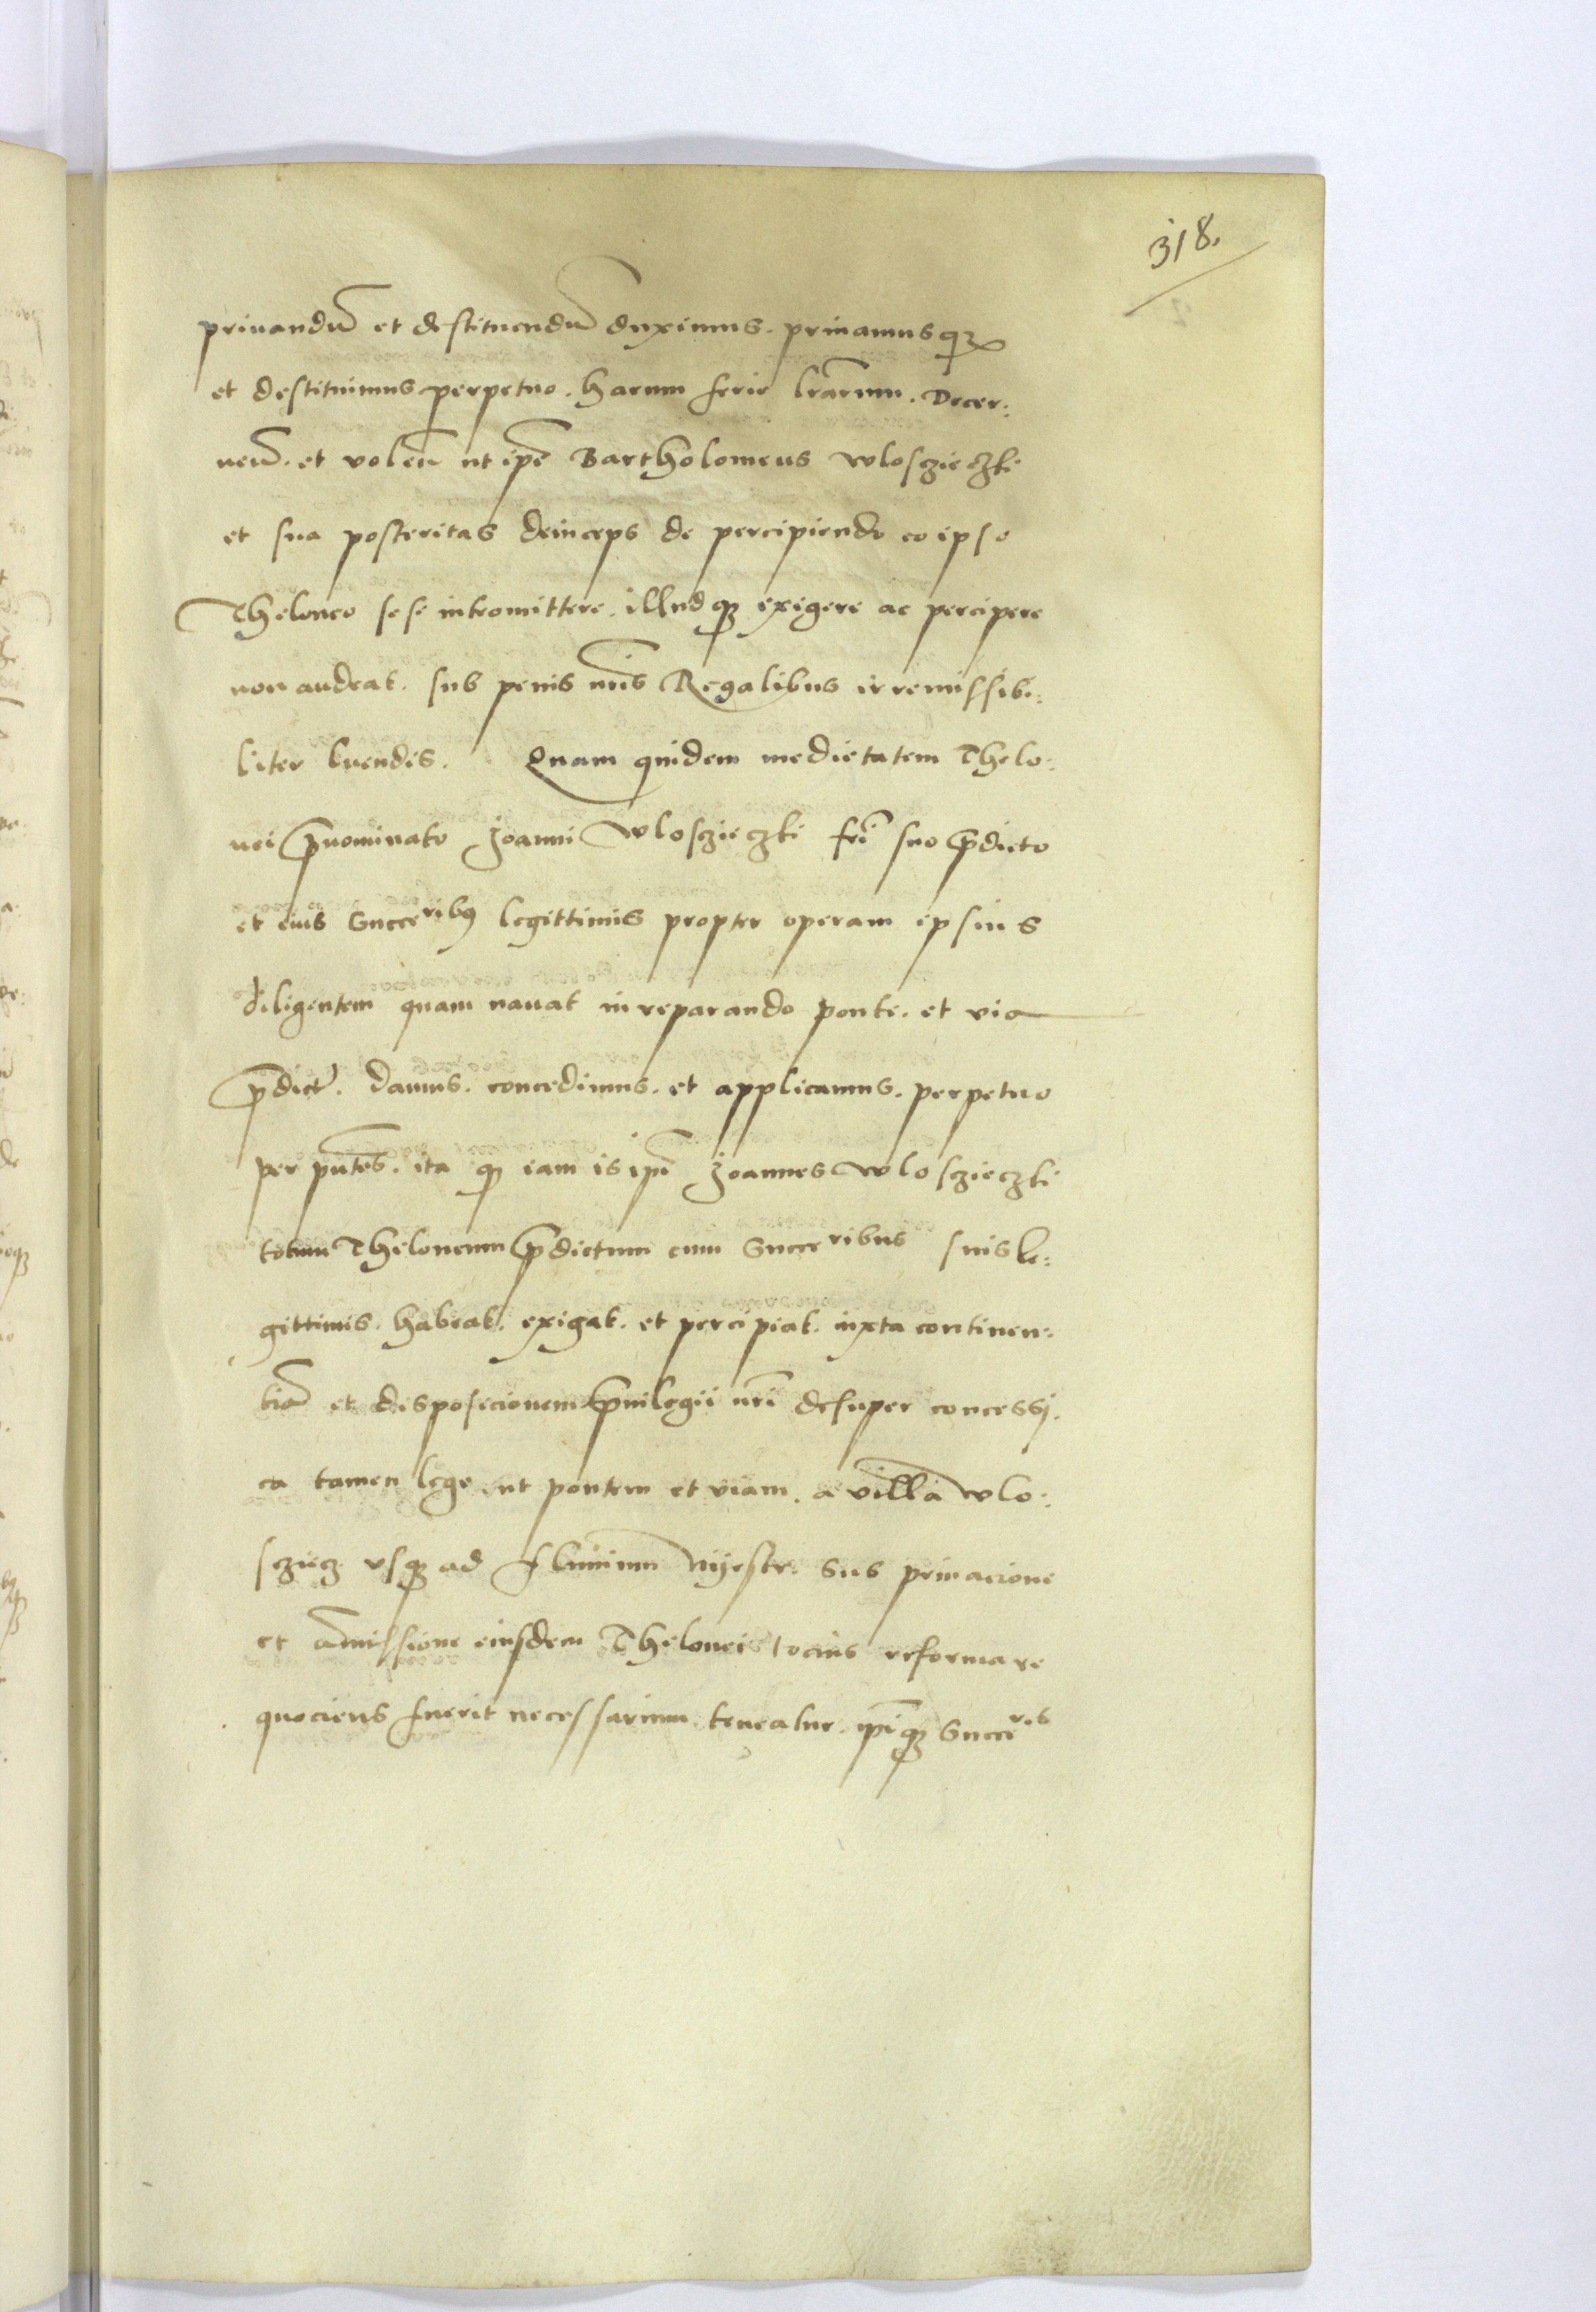 318.
priuandũ et destituendũ duximus. priuamusqꝫ
et destituimus perpetuo. harum serie lrãrum. Decer:
neñ. et voleñ ut ipẽ Bartholomeus wlosczieczki
et sua posteritas deinceps de percipiendo eo ipso
Theloneo sese intromittere. illudqꝫ exigere ac percipere
non audeat. sub penis nris̃ Regalibus irremissibi:
liter luendis. Quam quidem medietatem Thelo:
nei p̃nominato Joanni wlosczieczki fri̇̃ suo p̃dicto
et eius Succeribꝰ legittimis propter operam ipsius
diligentem quam nauat in reparando ponte. et via
p̃dict. damus. concedimus. et applicamus. perpetuo
per pñtes. ita qꝫ iam is ipẽ Joannes wlosczieczki
totum Theloneum p̃dictum cum Succeribus suis le:
gittimis. habeat. exigat. et percipiat. iuxta continen:
tiã et disposicionem p̃uilegii nrĩ desuper concessi.
ea tamen lege ut pontem et viam. a villa wlo:
scziecz vsqꝫ ad fluuium Nijestr. Sub priuacione
et amissione eiusdem Thelonei tocius reformare
quociens fuerit necessarium. teneatur. ipĩqꝫ Succeres